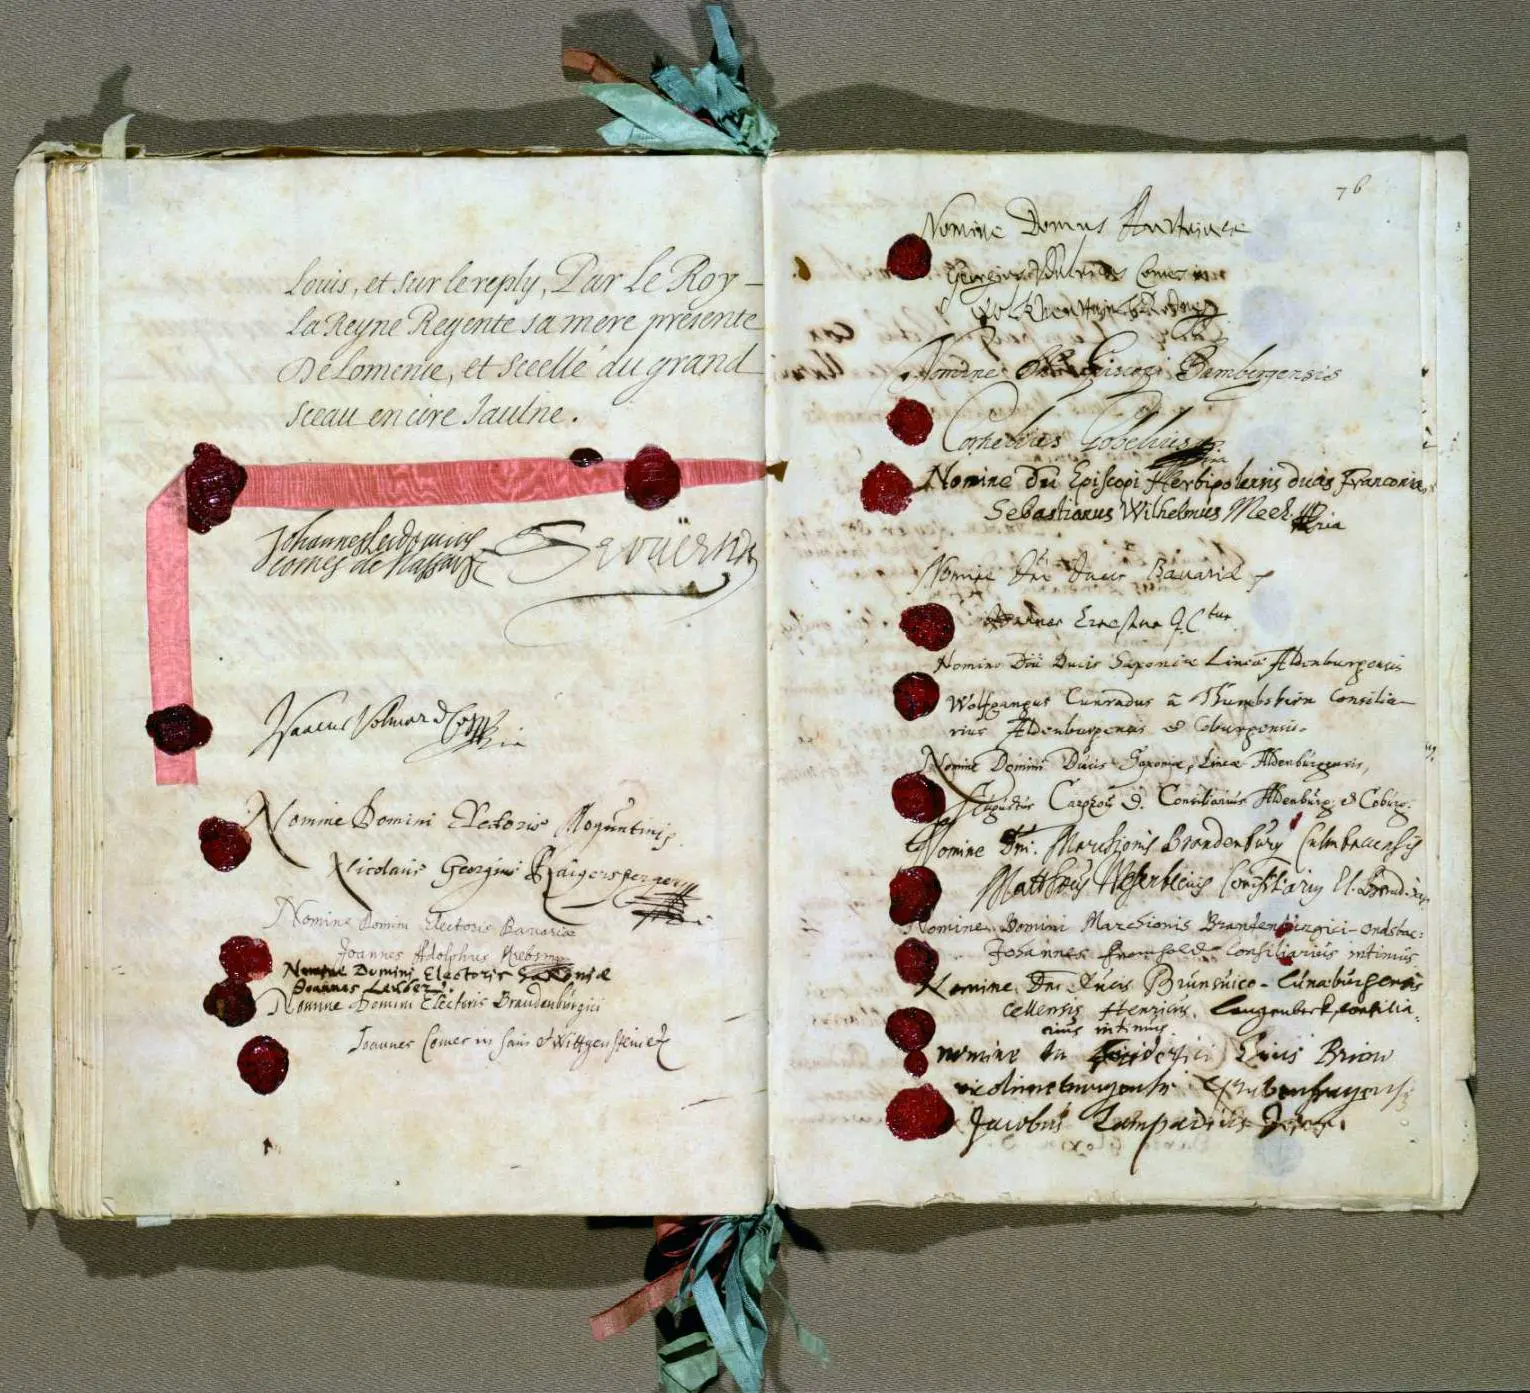 Louis, et sur le reply, Par Le Roy –
La Reyne Regente sa mere presente
De Lomenie, et scellé du grand
sceau en cire Jaulne.
Johannes Ludovicus
comes de Nassau
Servien
Isaacus Volmar D
Nomine Domini Electoris Moguntini,
Nicolaus Georgius Raigersperger
Nomine Domini Electoris Bavariæ
Joannes Adolphus Krebs
Nomine Domini Electoris Saxoniæ
Joannes Leuber.
Nomine Domini Electoris Brandenburgici
Joannes Comes in Sain & Wittgenstein
76
Nomine Domus Austriacæ
Georgius Udalricus Comes in
Nomine Episcopi Bambergensis
Cornelius Gobelius
Nomine Dni Episcopi Herbipolensis ducis Franconiæ
Sebastianus Wilhelmus Meel
Nomine Dni Ducis Bavariæ
Ernestus J.Ctus.
Nomine Dni Ducis Saxoniæ Lineæ Aldenburgensis
Wolfgangus Cunradus à Thumbshirn Consilia-
rius Aldenburgensis & Coburgensis.
Nomine Domini Ducis Saxoniæ, Lineæ Aldenburgensis,
Augustus Carpzov D. Consiliarius Aldenburg: & Coburg:
Nomine Dni. Marchionis Brandenburg Culmbacensis
Matthæus Wesenbecius Consiliarius El. Brand.
Nomine Domini Marchionis Brandenburgici-Onolsbac:
Johannes Fromhold Consiliarius intimus
Nomine Dni Ducis Brunsvico-Lunæburgensis
Cellensis Henricus Langenbeck, consilia-
rius intimus.
nomine Dn Ducis Bruns
Jacobus Lampadius